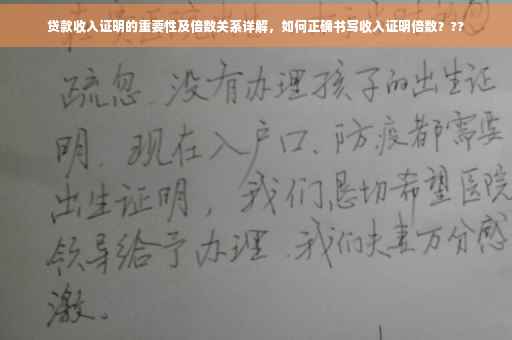 贷款收入证明的重要性及倍数关系详解，如何正确书写收入证明倍数？??
疏忽.没有办理孩子的出生证
明.现在入户口、防疫都需要
出生证明，我们恳切希望医院
领导给予办理.我们夫妻万分感
激。